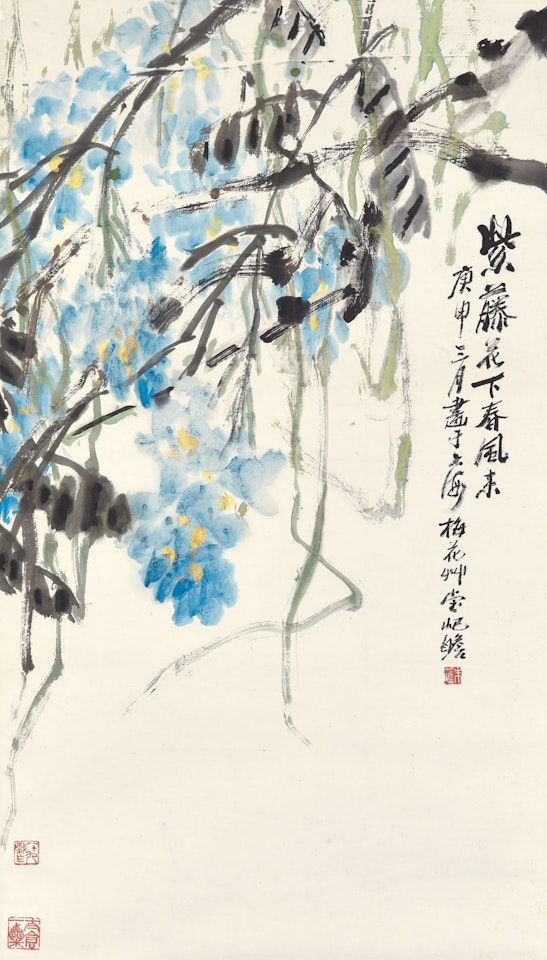 紫藤花下春風来
庚申三月畫于上海 梅花艸堂屺瞻